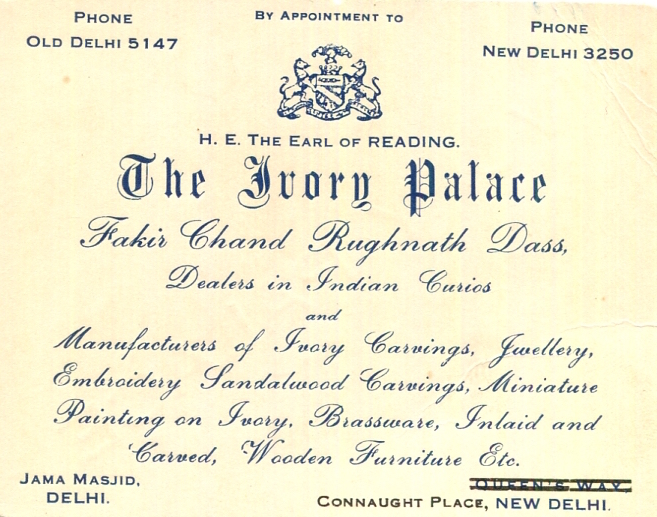 PHONE
OLD DELHI 5147
BY APPOINTMENT TO
PHONE
NEW DELHI 3250
H. E. THE EARL OF READING.
The Ivory Palace
Fakir Chand Rughnath Dass,
Dealers in Indian Curios
and
Manufacturers of Ivory Carvings, Jwellery,
Embroidery Sandalwood Carvings, Miniature
Painting on Ivory, Brassware, Inlaid and
Carved, Wooden Furniture Etc.
JAMA MASJID,
DELHI.
QUEEN'S WAY,
CONNAUGHT PLACE, NEW DELHI.